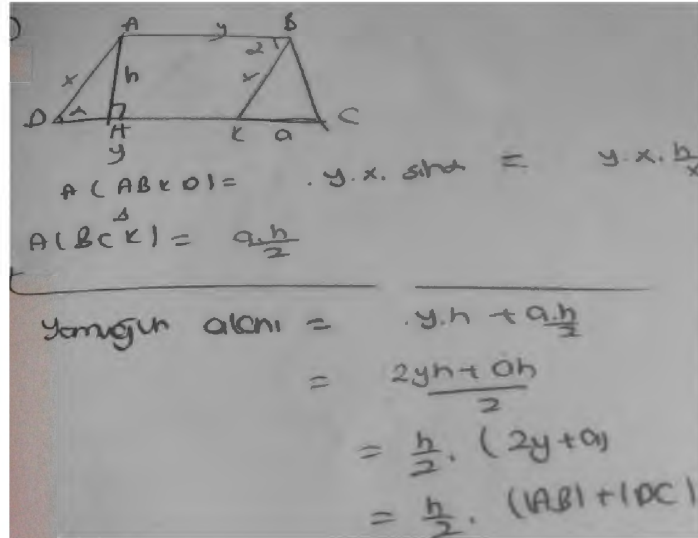 A y B
x h 2 x
D α H K a C
y
A(ABKD) = .y.x. sinα = y.x.h/x
A(BCK) = a.h/2
Yamuğun alanı = .y.h + a.h/2
= 2yh + ah/2
= h/2 . (2y+a)
= h/2 . (|AB| + |DC|